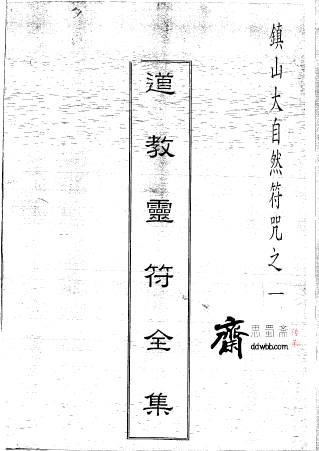 鎮山大自然符咒之一
道教靈符全集
齋
思蜀斋
ddwbb.com